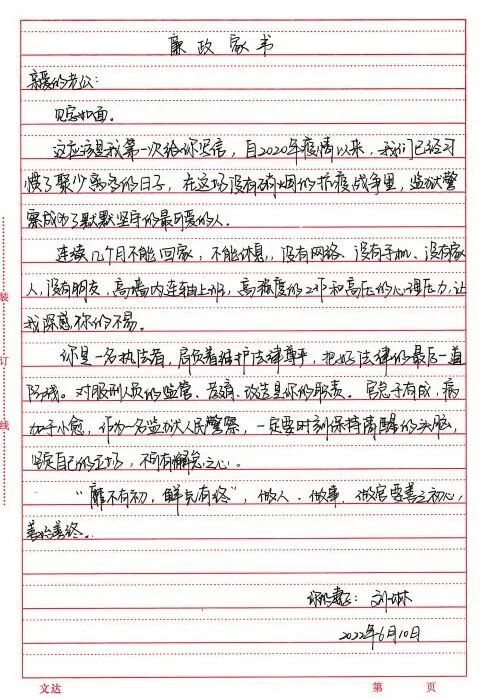 廉政家书
亲爱的老公：
见字如面。
这应该是我第一次给你写信，自2020年疫情以来，我们已经习
惯了聚少离多的日子，在这场没有硝烟的抗疫战争里，监狱警
察成为了默默坚守的最可爱的人。
连续几个月不能回家，不能休息，没有网络、没有手机、没有家
人，没有朋友，高墙内连轴上班，高强度的工作和高压的心理压力，让
我深感你的不易。
你是一名执法者，肩负着维护法律尊严，把好法律的最后一道
防线。对服刑人员的监管、教育、改造是你的职责。官怠于有成，病
加于小愈，作为一名监狱人民警察，一定要时刻保持清醒的头脑，
坚定自己的立场，不可有懈怠之心。
“靡不有初，鲜克有终”，做人、做事、做官要善之初心，
善始善终。
你的妻子：刘琳
2022年6月10日
装
订
线
文达
第 页